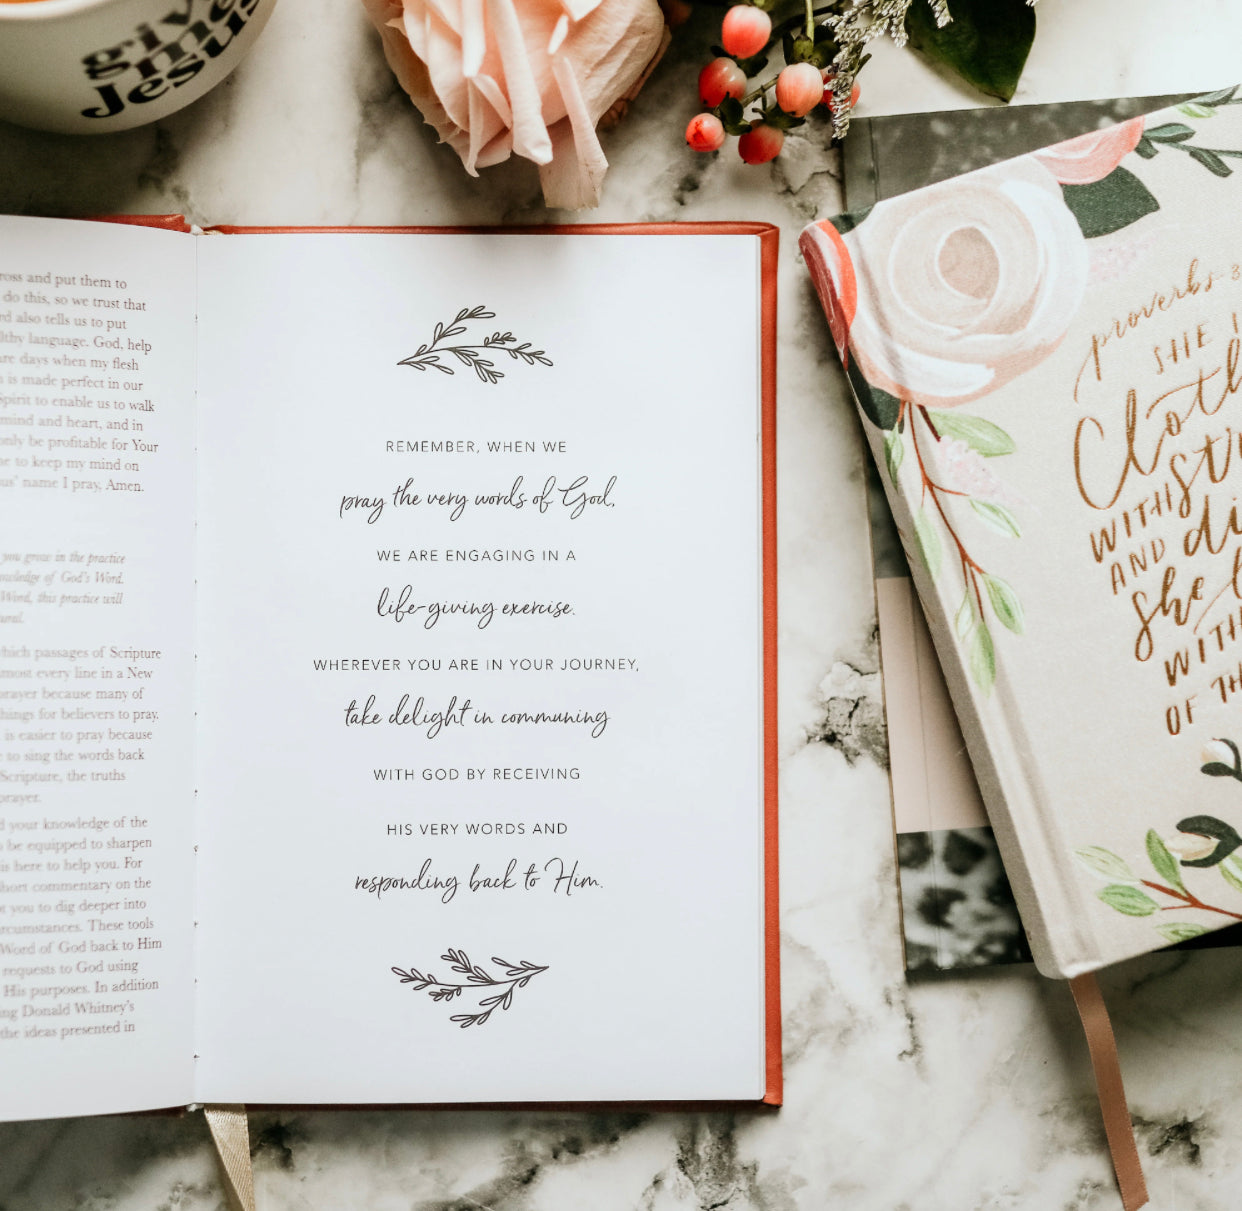 give
me
Jesus
ross and put them to
do this, so we trust that
rd also tells us to put
lthy language. God, help
are days when my flesh
is made perfect in our
Spirit to enable us to walk
mind and heart, and in
only be profitable for Your
to keep my mind on
name I pray, Amen.
you grow in the practice
of God's Word.
Word, this practice will
which passages of Scripture
almost every line in a New
prayer because many of
things for believers to pray.
is easier to pray because
to sing the words back
Scripture, the truths
prayer.
d your knowledge of the
be equipped to sharpen
is here to help you. For
short commentary on the
you to dig deeper into
circumstances. These tools
Word of God back to Him
requests to God using
His purposes. In addition
ing Donald Whitney's
the ideas presented in
REMEMBER, WHEN WE
pray the very words of God,
WE ARE ENGAGING IN A
life-giving exercise.
WHEREVER YOU ARE IN YOUR JOURNEY,
take delight in communing
WITH GOD BY RECEIVING
HIS VERY WORDS AND
responding back to Him.
proverbs 3
SHE
Cloth
WITH
AND di
she
WITH
OF TH